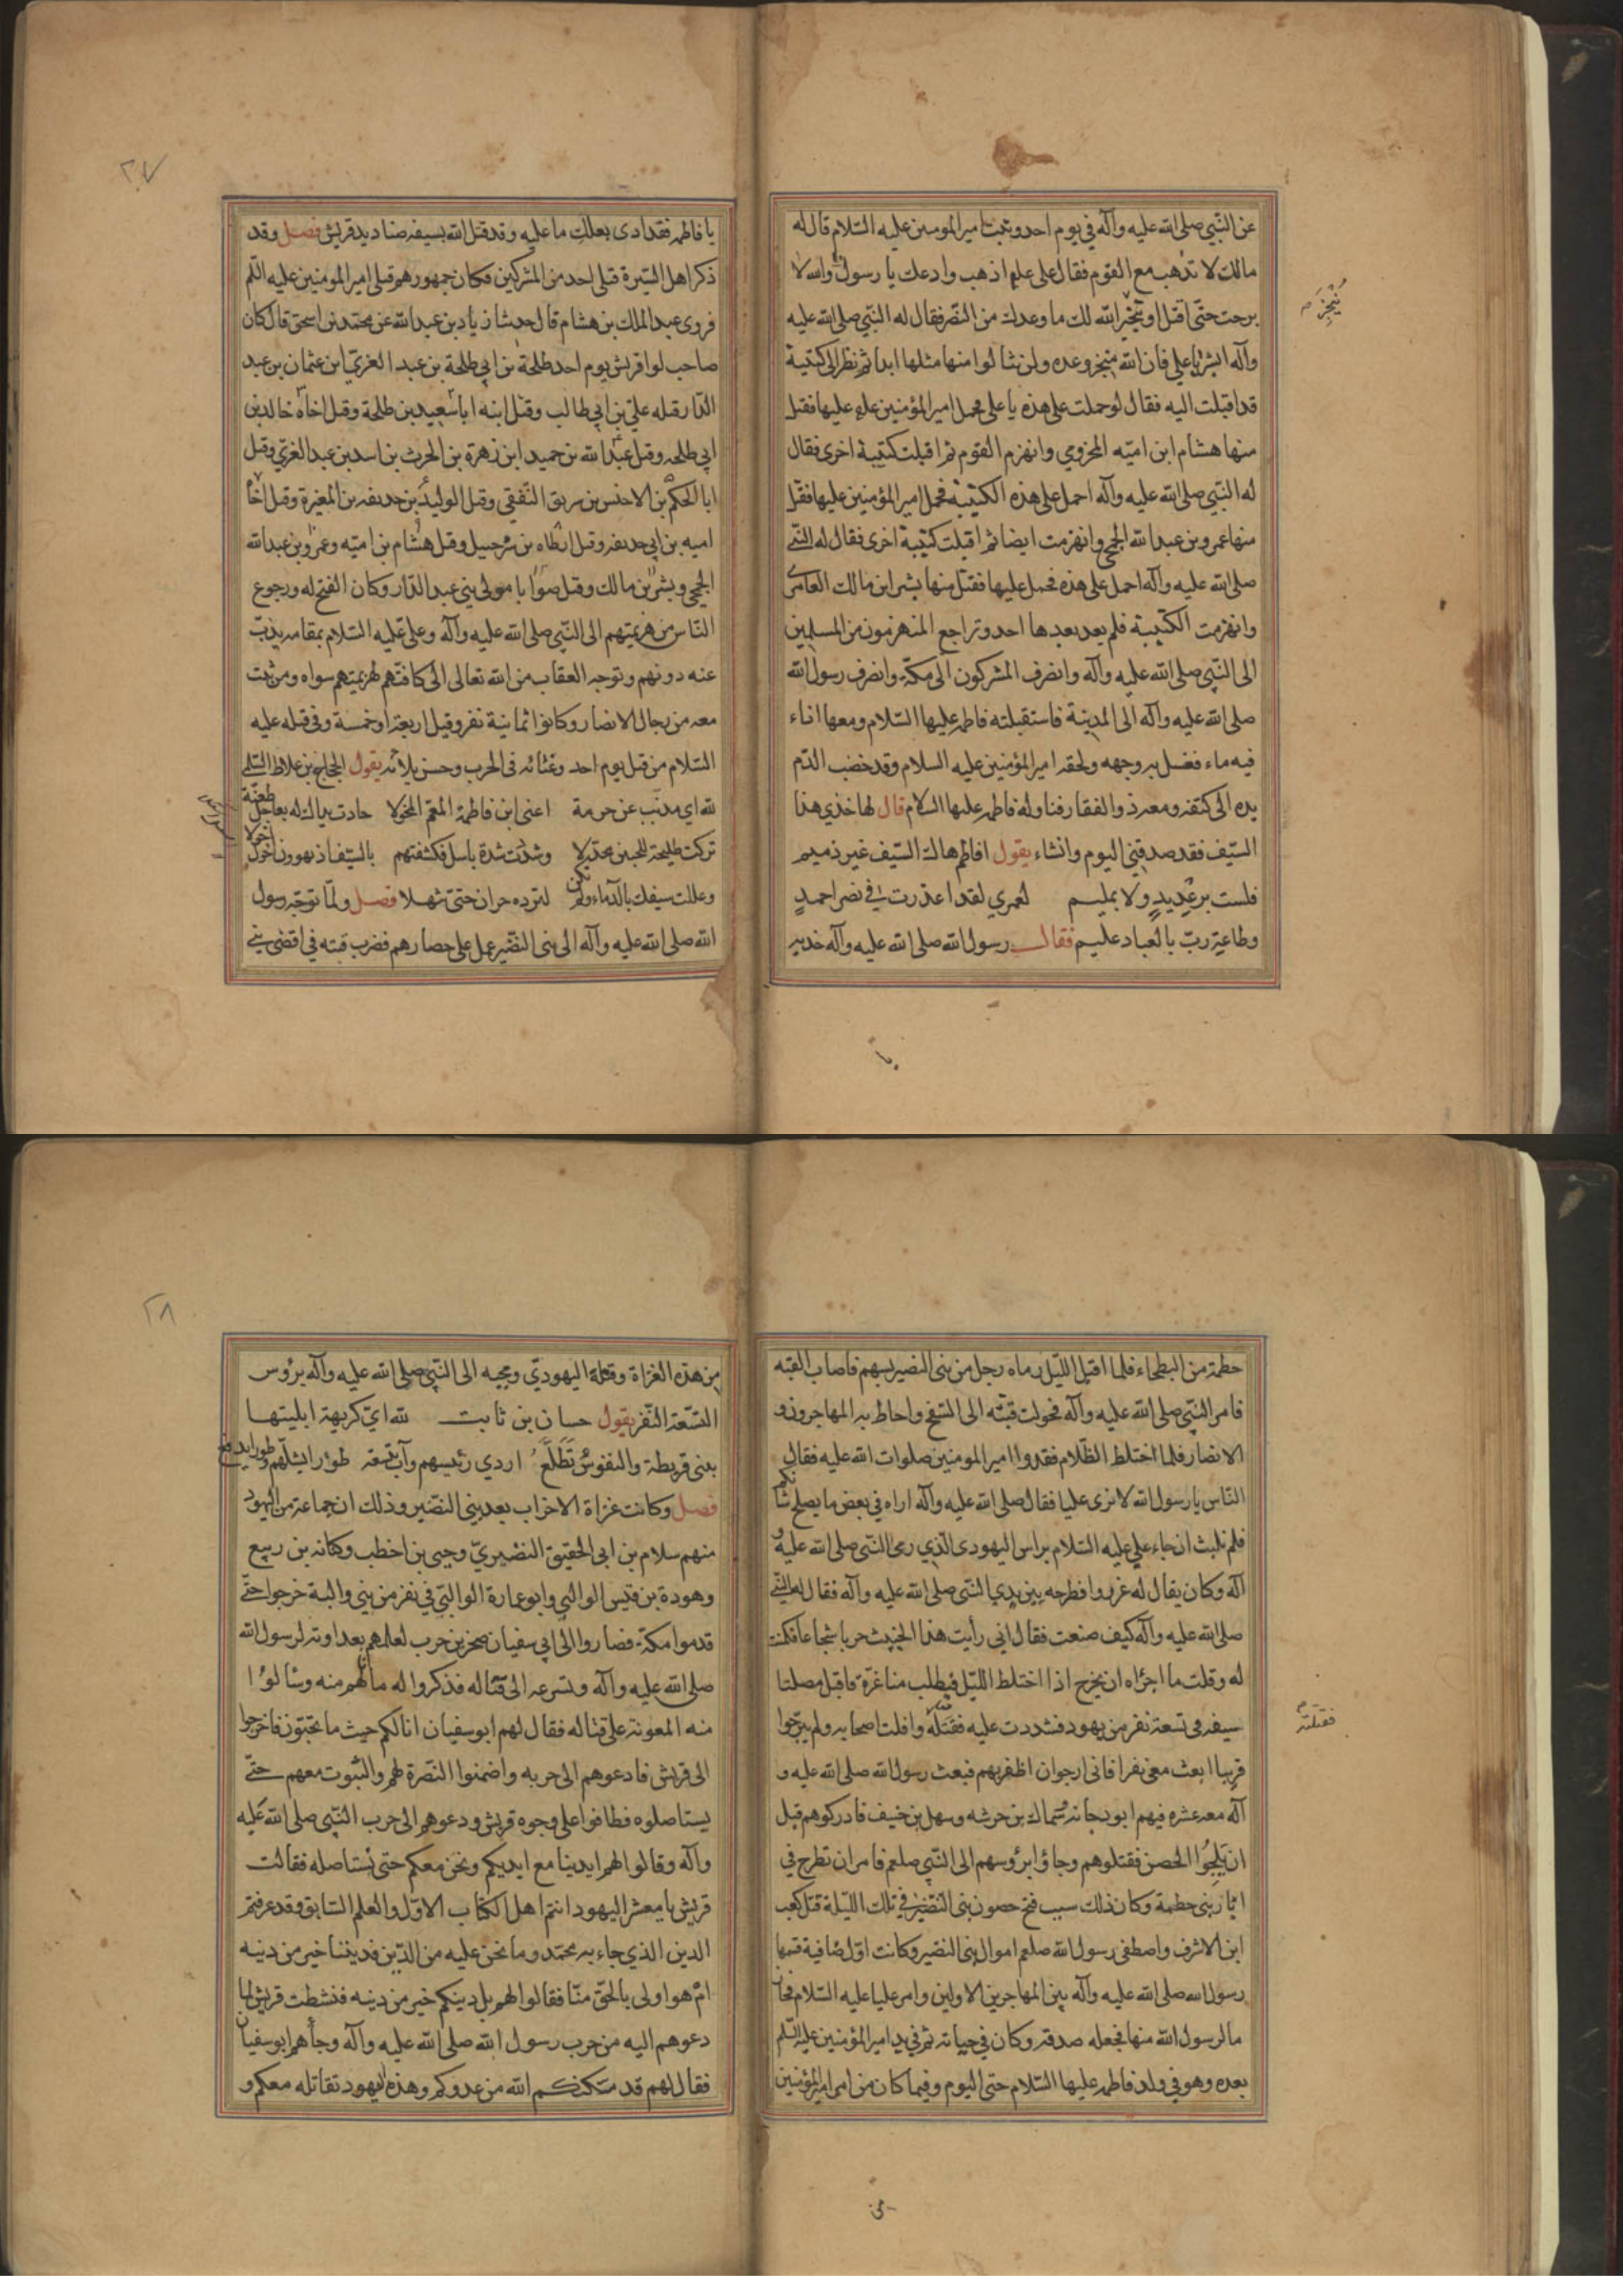 عن النّبي صلى الله عليه وآله في يوم احد وثبت امير المومنين عليه السّلام قال له
مالك لا تذهب مع القوم فقال على علم اذهب وادعك يا رسول الله والله لا
برحت حتّى اقتل او ينجّز الله لك ما وعدك من النّصر فقال له النّبي صلى الله عليه
وآله ابشر يا علي فان الله منجز وعده ولن ينالوا منها مثلها ابدا ثم نظر الى كتيبة
قد اقبلت اليه فقال لو حملت على هذه يا على فحمل امير المؤمنين علم عليها فقتل
منها هشام ابن اميّه المخزومي وانهزم القوم ثم اقبلت كتيبة اخرى فقال
له النّبي صلى الله عليه وآله احمل على هذه الكتيبة فحمل امير المؤمنين عليها فقتل
منها عمرو بن عبد الله الجمحي وانهزمت ايضا ثم اقبلت كتيبة اخرى فقال له النّبي
صلى الله عليه وآله احمل على هذه فحمل عليها فقتل منها بشر ابن مالك العامرى
وانهزمت الكتيبة فلم يعد بعدها احد وتراجع المنهزمون من المسلمين
الى النّبي صلى الله عليه وآله وانصرف المشركون الى مكّة وانصرف رسول الله
صلى الله عليه وآله الى المدينة فاستقبلته فاطمه عليها السّلام ومعها اناء
فيه ماء فغسل به وجهه ولحقه امير المؤمنين عليه السلام وقد خضب الدّم
يده الى كتفه ومعه ذو الفقار فناوله فاطمه عليها السلام قال لها خذي هذا
السّيف فقد صدقني اليوم وانشاء يقول افاطم هاك السّيف غير ذميم
فلست برعديدٍ ولا بمليم لعمري لقد اعذرت في نصر احمدٍ
وطاعة ربّ بالعباد عليم فقال رسول الله صلى الله عليه وآله خذيه
ينجز
يا
٢٧
يا فاطمه فقد ادى بعلك ما عليه وقد قتل الله بسيفه صناديد قريش فصل وقد
ذكر اهل السّيرة قتلى احد من المشركين فكان جمهورهم قتلى امير المومنين عليه السّلم
فروى عبد الملك بن هشام قال حدثنا زياد بن عبد الله عن محمّد بن اسحق قال كان
صاحب لوا قريش يوم احد طلحة بن ابي طلحة بن عبد العزىّ ابن عثمان بن عبد
الدّار قتله علي بن ابي طالب وقتل ابنه ابا سعيد بن طلحة وقتل اخاه خالد بن
ابي طلحه وقتل عبد الله بن حميد ابن زهرة بن الحرث بن اسد بن عبد العزي وقتل
ابا الحكم بن الاخنس بن سريق الثّقفي وقتل الوليد بن حديفه بن المغيرة وقتل اخاه
اميه بن ابي حديفه وقتل ارطاه بن شرحبيل وقتل هشام بن اميّه وعمرو بن عبد الله
الجمحي وبشر بن مالك وقتل صوابا مولى بني عبد الدّار وكان الفتح له ورجوع
النّاس من هزيمتهم الى النّبي صلى الله عليه وآله وعلى عليه السّلام بمقامه يذبّ
عنه دونهم وتوجه العقاب من الله تعالى الى كافتهم لهزيمتهم سواه ومن ثبت
معه من رجال الانصار وكانوا ثمانية نفر وقيل اربعة او خمسة وفى قتله عليه
السّلام من قتل يوم احد وغنائه فى الحرب وحسن بلائه يقول الحجاج بن علاط السّلمى
لله اى مذبّب عن حرمة اعنى ابن فاطمة المعمّ المخولا جادت يداك له بعاجل طعنة
تركت طليحة للجبين مجدّلا وشددت شدة باسل فكشفتهم بالسّيف اذ يهوون اخول اخولا
وعللت سيفك بالدّماء ولم تكن لتردّه حران حتى ينهلا فصل ولمّا توجّه رسول
الله صلى الله عليه وآله الى بنى النضير عمل على حصارهم فضرب قبته في اقصى بنى
حطمة من البطحاء فلما اقبل اللّيل رماه رجل من بنى النضير بسهم فاصاب القبه
فامر النّبي صلى الله عليه وآله فحولت قبّته الى السّفح واحاط به المهاجرون و
الانصار فلما اختلط الظّلام فقدوا امير المومنين صلوات الله عليه فقال
النّاس يا رسول الله لا نرى عليا فقال صلى الله عليه وآله اراه في بعض ما يصلح شانكم
فلم نلبث ان جاء علي عليه السّلام براس اليهودى الّذي رمى النّبي صلى الله عليه و
آله وكان يقال له غرورا فطرحه بين يدي النّبي صلى الله عليه وآله فقال له النّبي
صلى الله عليه وآله كيف صنعت فقال انى رأيت هذا الخبيث جريا شجاعا فكمنت
له وقلت ما اجرأه ان يخرج اذا اختلط اللّيل فيطلب منا غرّة فاقبل مصلتا
سيفه فى تسعة نفر من يهود فشددت عليه فقتلته وافلت اصحابه ولم يبرحوا
قريبا ابعث معى نفرا فانى ارجوا ان اظفر بهم فبعث رسول الله صلى الله عليه و
آله معه عشره فيهم ابو دجانه سماك بن خرشه وسهل بن حنيف فادركوهم قبل
ان يلجوا الحصن فقتلوهم وجاؤا برؤسهم الى النّبي صلعم فامر ان تطرح في
ابار بنى حطمة وكان ذلك سبب فتح حصون بنى النضير في تلك اللّيلة قتل كعب
ابن الاشرف واصطفى رسول الله صلعم اموال بنى النضير وكانت اوّل صافية قسمها
رسول الله صلى الله عليه وآله بين المهاجرين الاولين وامر عليا عليه السّلام فحاز
ما لرسول الله منها فجعله صدقة وكان في حياته ثم في يد امير المؤمنين عليه السّلم
بعده وهو في ولد فاطمه عليها السّلام حتى اليوم وفيما كان من امر امير المؤمنين
فقتلته
من
٢٨
من هذه الغزاة وقتله اليهوديّ ومجيه الى النّبي صلى الله عليه وآله برؤس
التّسعة النّفر يقول حسان بن ثابت لله ايّ كريهة ابليتها
ببنى قريظة والنفوس تطلّع اردي رئيسهم وآب بتسعة طورا يشلّهم وطورا يدفع
فصل وكانت غزاة الاحزاب بعد بنى النضير وذلك ان جماعة من اليهود
منهم سلام بن ابى الحقيق النضيريّ وحيى بن اخطب وكنانه بن ربيع
وهودة بن قيس الوالبي وابو عمارة الوالبّي في نفر من بني والبة خرجوا حتّى
قدموا مكة فصاروا الى ابي سفيان صخر بن حرب لعلمهم بعداوته لرسول الله
صلى الله عليه وآله وتسرعه الى قتاله فذكروا له ما نالهم منه وسالوا
منه المعونة على قتاله فقال لهم ابو سفيان انا لكم حيث ما تحبّون فاخرجوا
الى قريش فادعوهم الى حربه واضمنوا النّصرة لهم والثبوت معهم حتّى
يستاصلوه فطافوا على وجوه قريش ودعوهم الى حرب النّبي صلى الله عليه
وآله وقالوا لهم ايدينا مع ايديكم ونحن معكم حتى نستاصله فقالت
قريش يا معشر اليهود انتم اهل الكتاب الاوّل والعلم السّابق وقد عرفتم
الدين الذي جاء به محمّد وما نحن عليه من الدّين فديننا خير من دينه
ام هو اولى بالحقّ منّا فقالوا لهم بل دينكم خير من دينه فنشطت قريش لما
دعوهم اليه من حرب رسول الله صلى الله عليه وآله وجاءهم ابو سفيان
فقال لهم قد مكنكم الله من عدوكم وهذه اليهود تقاتله معكم و